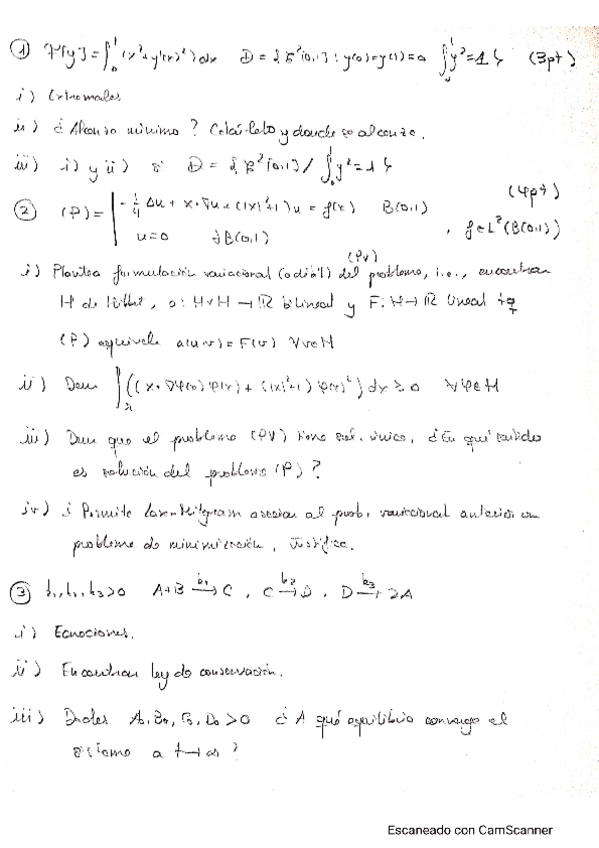 ① F[y] = ∫₀¹ (x² + y'(x)²) dx D = { C²[0,1] : y(0)=y(1)=0 ∫₀¹ y² = 1 } (3pt)
i) Extremales
ii) ¿ Alcanza mínimo ? Calcúlalo y donde se alcanza.
iii) i) y ii) si D = { C²[0,1] / ∫₀¹ y² = 1 }
(4pt)
② (P) = | -¼ Δu + x·∇u + (|x|²+1) u = f(x) B(0,1)
u = 0 ∂B(0,1) , f ∈ L²(B(0,1))
i) Plantea formulación variacional (o débil) (PV) del problema, i.e., encontrar
H de Hilbert, a: H×H → ℝ bilineal y F: H → ℝ lineal tq
(P) equivale a(u,v) = F(v) ∀v∈H
ii) Dem ∫ ((x·∇φ(x) φ(x) + (|x|²+1) φ(x)²) dx ≥ 0 ∀φ∈H
iii) Dem que el problema (PV) tiene sol. única, ¿En qué sentido
es solución del problema (P) ?
iv) ¿ Permite Lax-Milgram asociar al prob. variacional anterior un
problema de minimización, Justifica.
③ k₁, k₂, k₃ > 0 A+B →k₁ C , C →k₂ D , D →k₃ 2A
i) Ecuaciones.
ii) Encontrar ley de conservación.
iii) Dados A₀, B₀, C₀, D₀ > 0 ¿ A qué equilibrio converge el
sistema a t→∞ ?
Escaneado con CamScanner